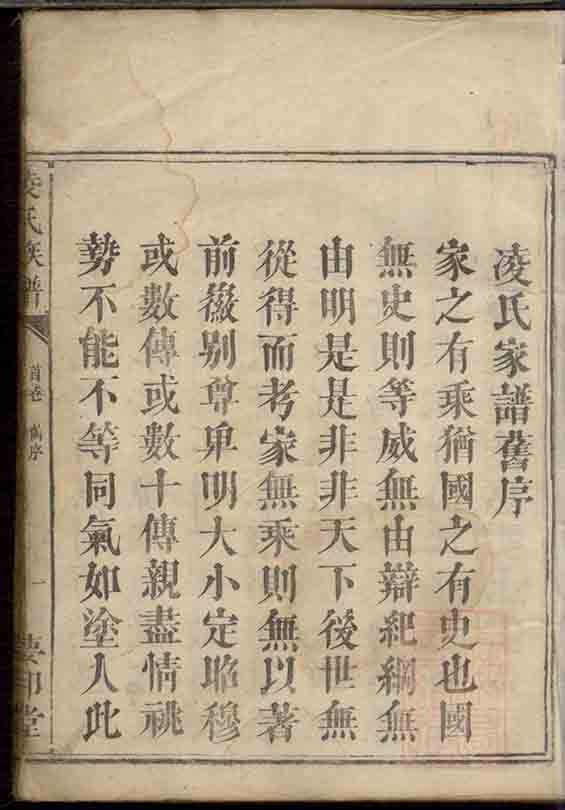 凌氏家譜舊序
家之有乘猶國之有史也國
無史則等威無由辯紀綱無
由明是是非非天下後世無
從得而考家無乘則無以著
前徽别尊卑明大小定昭穆
或數傳或數十傳親盡情祧
勢不能不等同氣如塗人此
凌氏族譜
首卷 舊序
一
堂